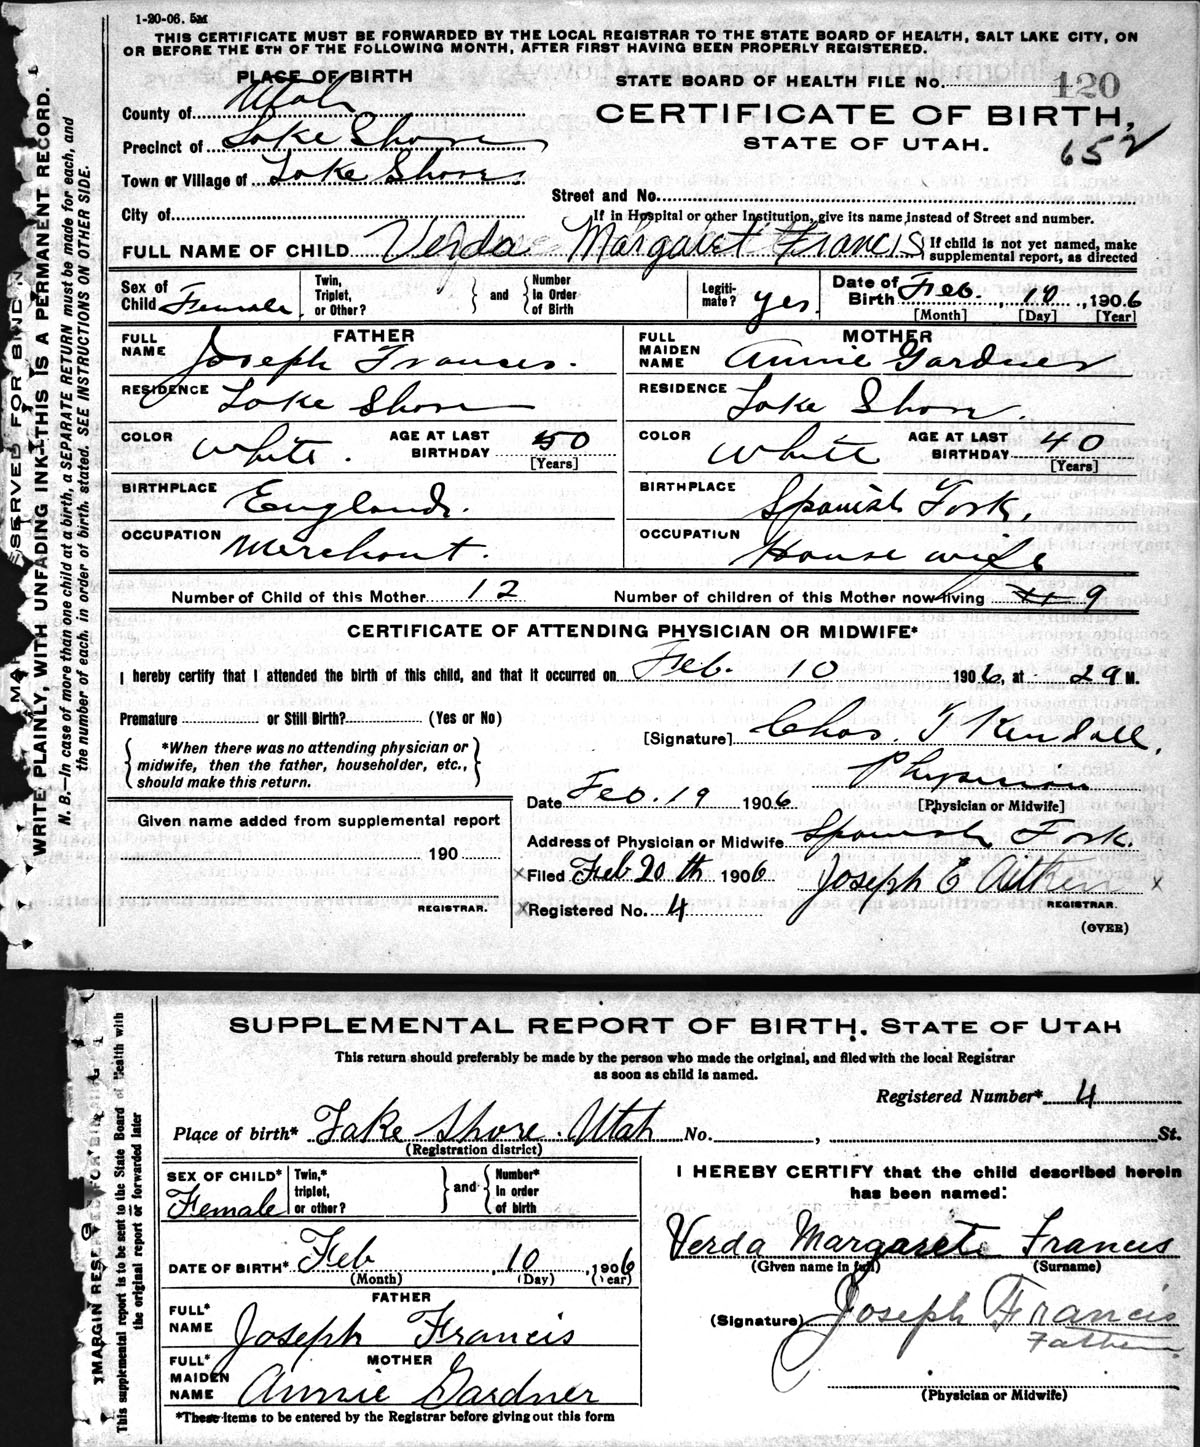 1-20-06. 5M
THIS CERTIFICATE MUST BE FORWARDED BY THE LOCAL REGISTRAR TO THE STATE BOARD OF HEALTH, SALT LAKE CITY, ON
OR BEFORE THE 5TH OF THE FOLLOWING MONTH, AFTER FIRST HAVING BEEN PROPERLY REGISTERED.
PLACE OF BIRTH
STATE BOARD OF HEALTH FILE No. 120
County of Utah
CERTIFICATE OF BIRTH,
Precinct of Lake Shore
STATE OF UTAH.
652
Town or Village of Lake Shore
Street and No.
City of
If in Hospital or other Institution, give its name instead of Street and number.
FULL NAME OF CHILD Verda Margaret Francis
If child is not yet named, make
supplemental report, as directed
Sex of Child Female
Twin, Triplet, or Other? and Number in Order of Birth
Legiti-mate? yes.
Date of Birth Feb. 10, 1906
[Month] [Day] [Year]
FATHER
FULL NAME Joseph Frances.
MOTHER
FULL MAIDEN NAME Annie Gardner
RESIDENCE Lake Shore
RESIDENCE Lake Shore.
COLOR White. AGE AT LAST BIRTHDAY 50 [Years]
COLOR White AGE AT LAST BIRTHDAY 40 [Years]
BIRTHPLACE England.
BIRTHPLACE Spanish Fork,
OCCUPATION Merchant.
OCCUPATION House wife
Number of Child of this Mother 12 Number of children of this Mother now living 11 9
CERTIFICATE OF ATTENDING PHYSICIAN OR MIDWIFE*
I hereby certify that I attended the birth of this child, and that it occurred on Feb. 10 1906, at 29 M.
Premature or Still Birth? (Yes or No)
*When there was no attending physician or
midwife, then the father, householder, etc.,
should make this return.
[Signature] Chas. T Kendall,
Physician
[Physician or Midwife]
Date Feb. 19 1906
Address of Physician or Midwife Spanish Fork.
Given name added from supplemental report
190
REGISTRAR.
x Filed Feb 20 th 1906 Joseph E Aitken x
REGISTRAR.
x Registered No. 4
(OVER)
MARGIN RESERVED FOR BINDING
WRITE PLAINLY, WITH UNFADING INK—THIS IS A PERMANENT RECORD.
N. B.—In case of more than one child at a birth, a SEPARATE RETURN must be made for each, and
the number of each, in order of birth, stated. SEE INSTRUCTIONS ON OTHER SIDE.
SUPPLEMENTAL REPORT OF BIRTH, STATE OF UTAH
This return should preferably be made by the person who made the original, and filed with the local Registrar
as soon as child is named.
Registered Number* 4
Place of birth* Lake Shore. Utah No. , St.
(Registration district)
SEX OF CHILD* Female
Twin,* triplet, or other? and Number* in order of birth
I HEREBY CERTIFY that the child described herein
has been named:
DATE OF BIRTH* Feb 10, 1906
(Month) (Day) (Year)
Verda Margarete Francis
(Given name in full) (Surname)
FATHER
FULL* NAME Joseph Francis
(Signature) Joseph Francis
Father
MOTHER
FULL* MAIDEN NAME Annie Gardner
(Physician or Midwife)
*These items to be entered by the Registrar before giving out this form
MARGIN RESERVED FOR BINDING
This supplemental report is to be sent to the State Board of Health with
the original report or forwarded later